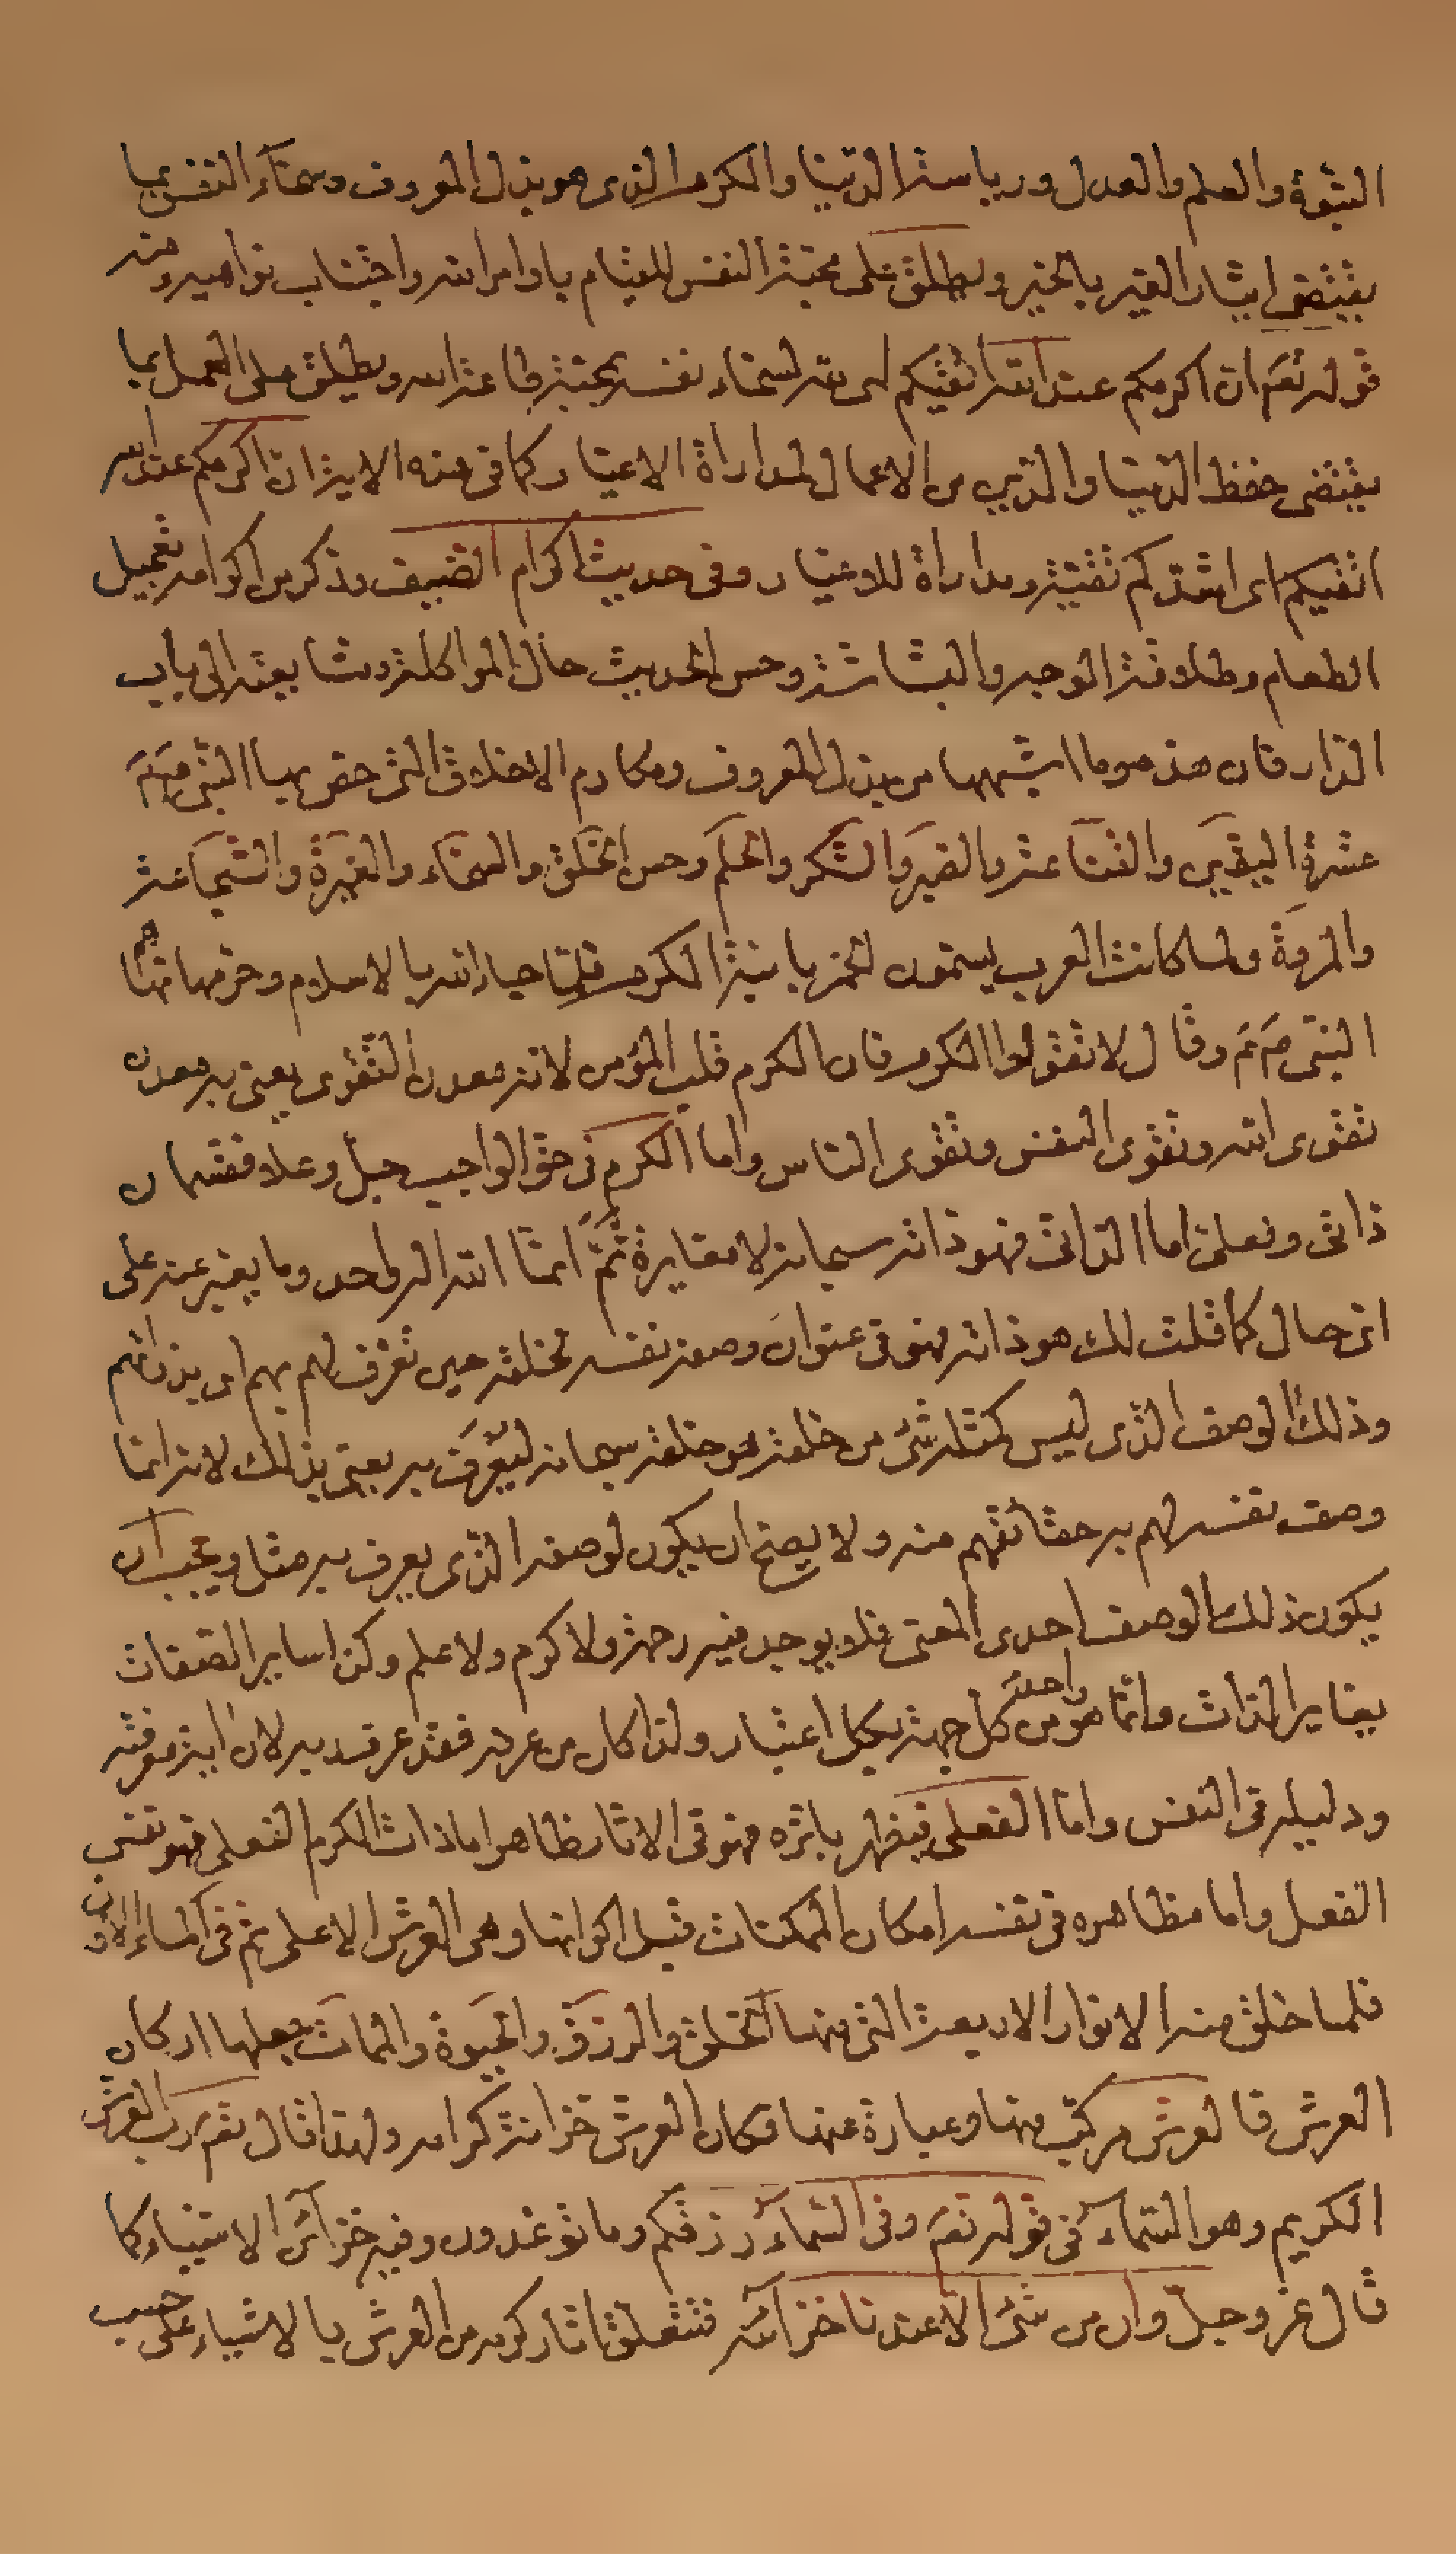 النبوة والعلم والعدل ورياسة الدنيا والكرم الذى هو بذل المعروف وسخاء النفس بما
يقتضى ايثار الغير بالخير ويطلق على محبة النفس للقيام باوامر الله واجتناب نواهيه ومنه
قوله تعم ان اكرمكم عند الله اتقيكم اى لله لسخاء نفسه بمحبة طاعة الله ويطلق على العمل بما
يقتضى حفظ الدنيا والدين من الاعمال لمداراة الاغيار كما فى هذه الاية ان اكرمكم عند الله
اتقيكم اى اشدكم تقية ومداراة للاغيار وفى حديث اكرام الضيف وذكر من اكرامه تعجيل
الطعام وطلاقة الوجه والبشاشة وحسن الحديث حال المواكلة ومشايعته الى باب
الدار فان هذه وما اشبهها من بذل المعروف ومكارم الاخلاق التى خص بها النبى صم
عشرة اليقين والقناعة والصبر والشكر والحلم وحسن الخلق والسخاء والغيرة والشجاعة
والمروة ولما كانت العرب يسمون الخمر بابنة الكرم فلما جاء الله بالاسلام وحرمها نهى
النبى صم وقال لا تقولوا الكرم فان الكرم قلب المؤمن لانه معدن التقوى يعنى به معدن
تقوى الله وتقوى النفس وتقوى الناس واما الكرم فى حق الواجب جل وعلا فقسمان
ذاتى وفعلى اما الذاتى فهو ذاته سبحانه لا مغايرة ثم انما الله اله واحد وما يعبر عنه على
اى حال كما قلت لك هو ذاته فهو فى عنوان وصفه نفسه لخلقه حين تعرف لهم بهم اى بذواتهم
وذلك الوصف الذى ليس كمثله شئ من خلقه هو خلقه سبحانه ليعرف به يعنى بذلك لانه انما
وصف نفسه لهم به حقائقهم منه ولا يصح ان يكون لوصفه الذى يعرف به مثل ويجب ان
يكون ذلك الوصف احدى المعنى فلا يوجد فيه رحمة ولا كرم ولا علم وكذا ساير الصفات
يغاير الذات وانما هو واحد من كل جهة بكل اعتبار ولذا كان من عرفه فقد عرف به لان اية معرفته
ودليله فى النفس واما الفعلى فيظهر باثره فهو فى الاثار ظاهر اما ذات الكرم الفعلى فهو نفس
الفعل واما مظاهره فى نفسه امكان الممكنات قبل اكوانها وهى العرش الاعلى ثم فى الماء الاول
فلما خلق منه الانوار الاربعة التى منها الخلق والرزق والحيوة والممات جعلها اركان
العرش فالعرش مركب منها وعبارة عنها فكان العرش خزانة كرامه ولهذا قال تعم رب العرش
الكريم وهو السماء فى قوله تعم وفى السماء رزقكم وما توعدون وفيه خزائن الاشياء كما
قال عز وجل وان من شئ الا عندنا خزائنه فتتعلق اثار كرمه من العرش بالاشياء على حسب